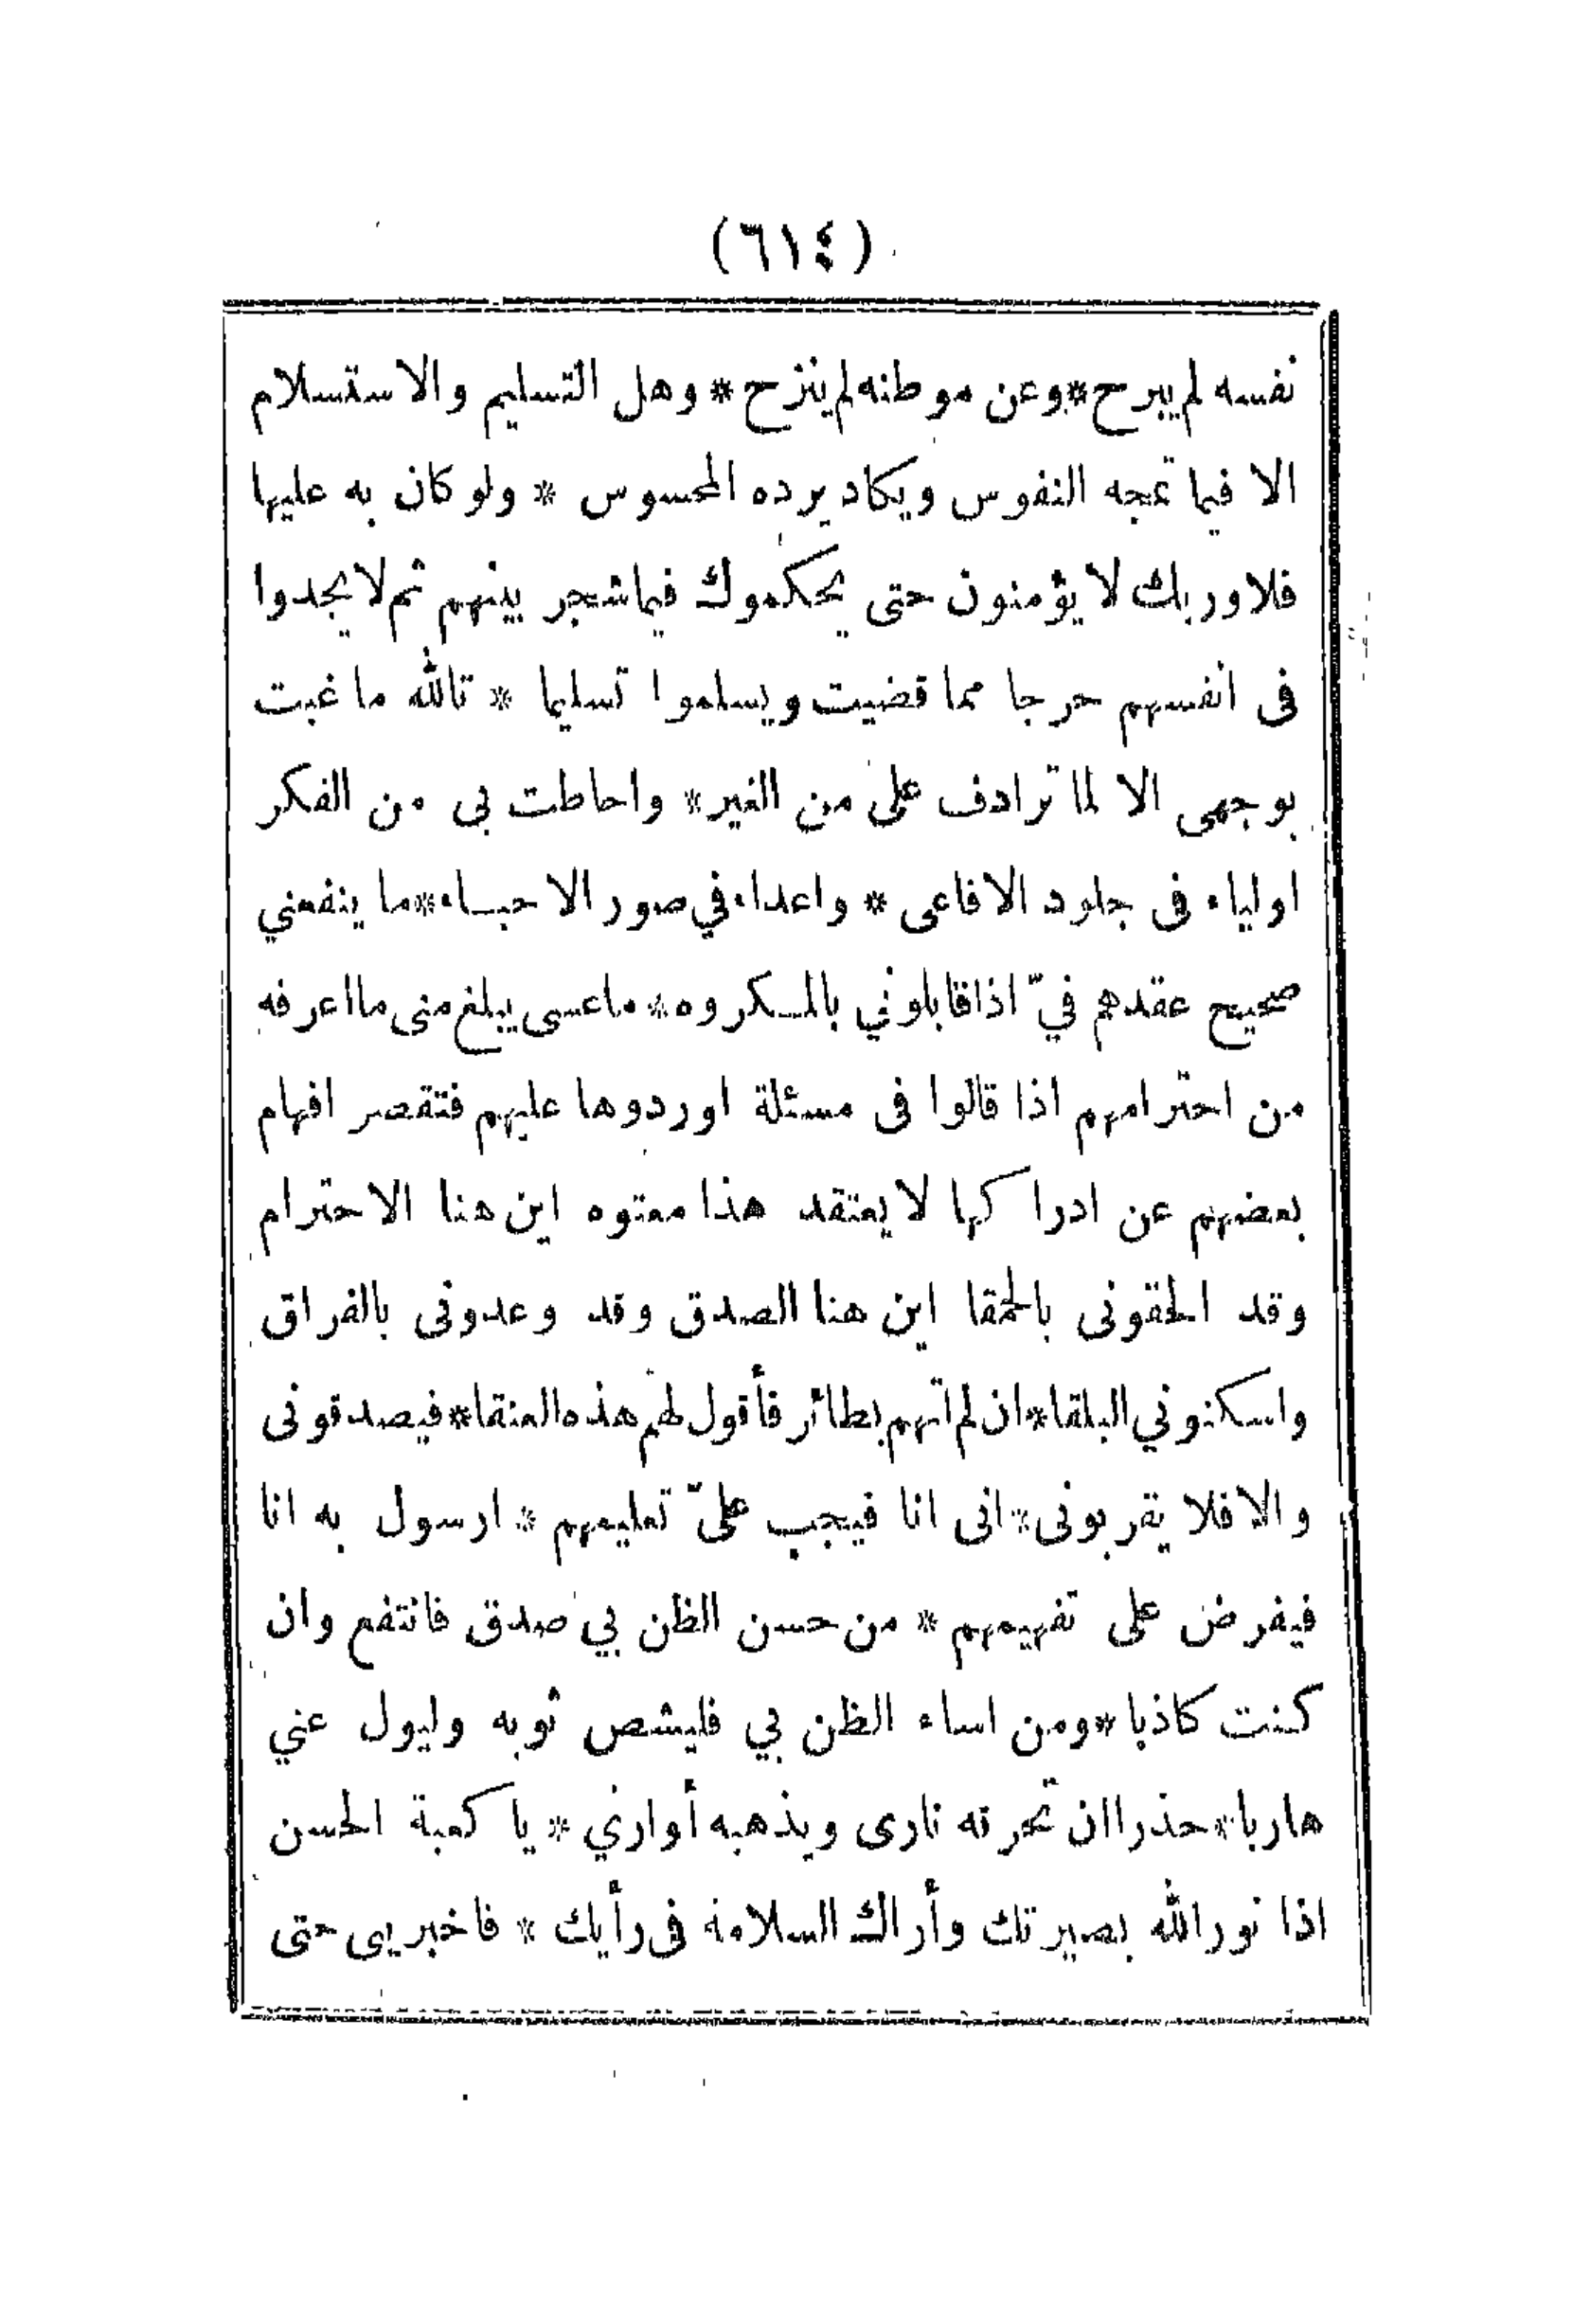 (٦١٤)
نفسه لم يبرح * وعن موطنه لم ينزح * وهل التسليم والاستسلام
الا فيما تمجه النفوس ويكاد يرده المحسوس * ولو كان به عليها
فلا وربك لا يؤمنون حتى يحكموك فيما شجر بينهم ثم لا يجدوا
فى انفسهم حرجا مما قضيت ويسلموا تسليما * تالله ما غبت
بوجهى الا لما ترادف على من الغير * واحاطت بى من الفكر
اولياء فى جلود الافاعى * واعداء في صور الاحباء * ما ينفعني
صحيح عقدهم فيّ اذا قابلوني بالمكروه * ماعسى يبلغ منى ما اعرفه
من احترامهم اذا قالوا فى مسئلة اوردوها عليهم فتقصر افهام
بعضهم عن ادراكها لا يعتقد هذا معتوه اين هنا الاحترام
وقد الحقونى بالحمقا اين هنا الصدق وقد وعدونى بالفراق
واسكنوني البلقا * ان لم آتهم بطائر فأقول لهم هذه العنقا * فيصدقونى
والا فلا يقربونى * انى انا فيجب علىّ تعليمهم * ارسول به انا
فيفرض على تفهيمهم * من حسن الظن بي صدق فانتفع وان
كنت كاذبا * ومن اساء الظن بي فليشص ثوبه وليول عني
هاربا * حذرا ان تحرقه نارى ويذهبه أواري * يا كعبة الحسن
اذا نور الله بصيرتك وأراك السلامة فى رأيك * فاخبريى حتى